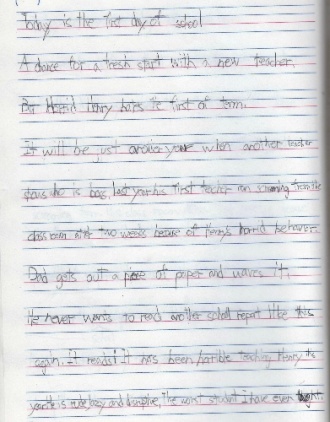 Today is the first day of school
A chance for a fresh start with a new teacher.
But Horrid Henry hates the first of term.
It will be just another year when another teacher
shows who is boss, last year his first teacher ran screaming from the
classroom after two weeks because of Henry's horrid behavior.
Dad gets out a piece of paper and waves it.
He never wants to read another school report like this
again. it reads! It has been horrible teaching Henry this
year he is rude, lazy and disruptive, The worst student I have ever taught.